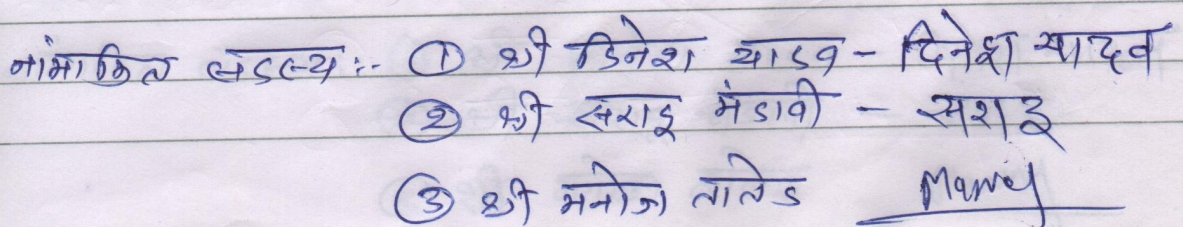 नांमाकित सडस्य :- ① श्री डिनेश याडव - दिनेश यादव
② श्री सराडू मंडावी - सराडू
③ श्री मनोज तालेड